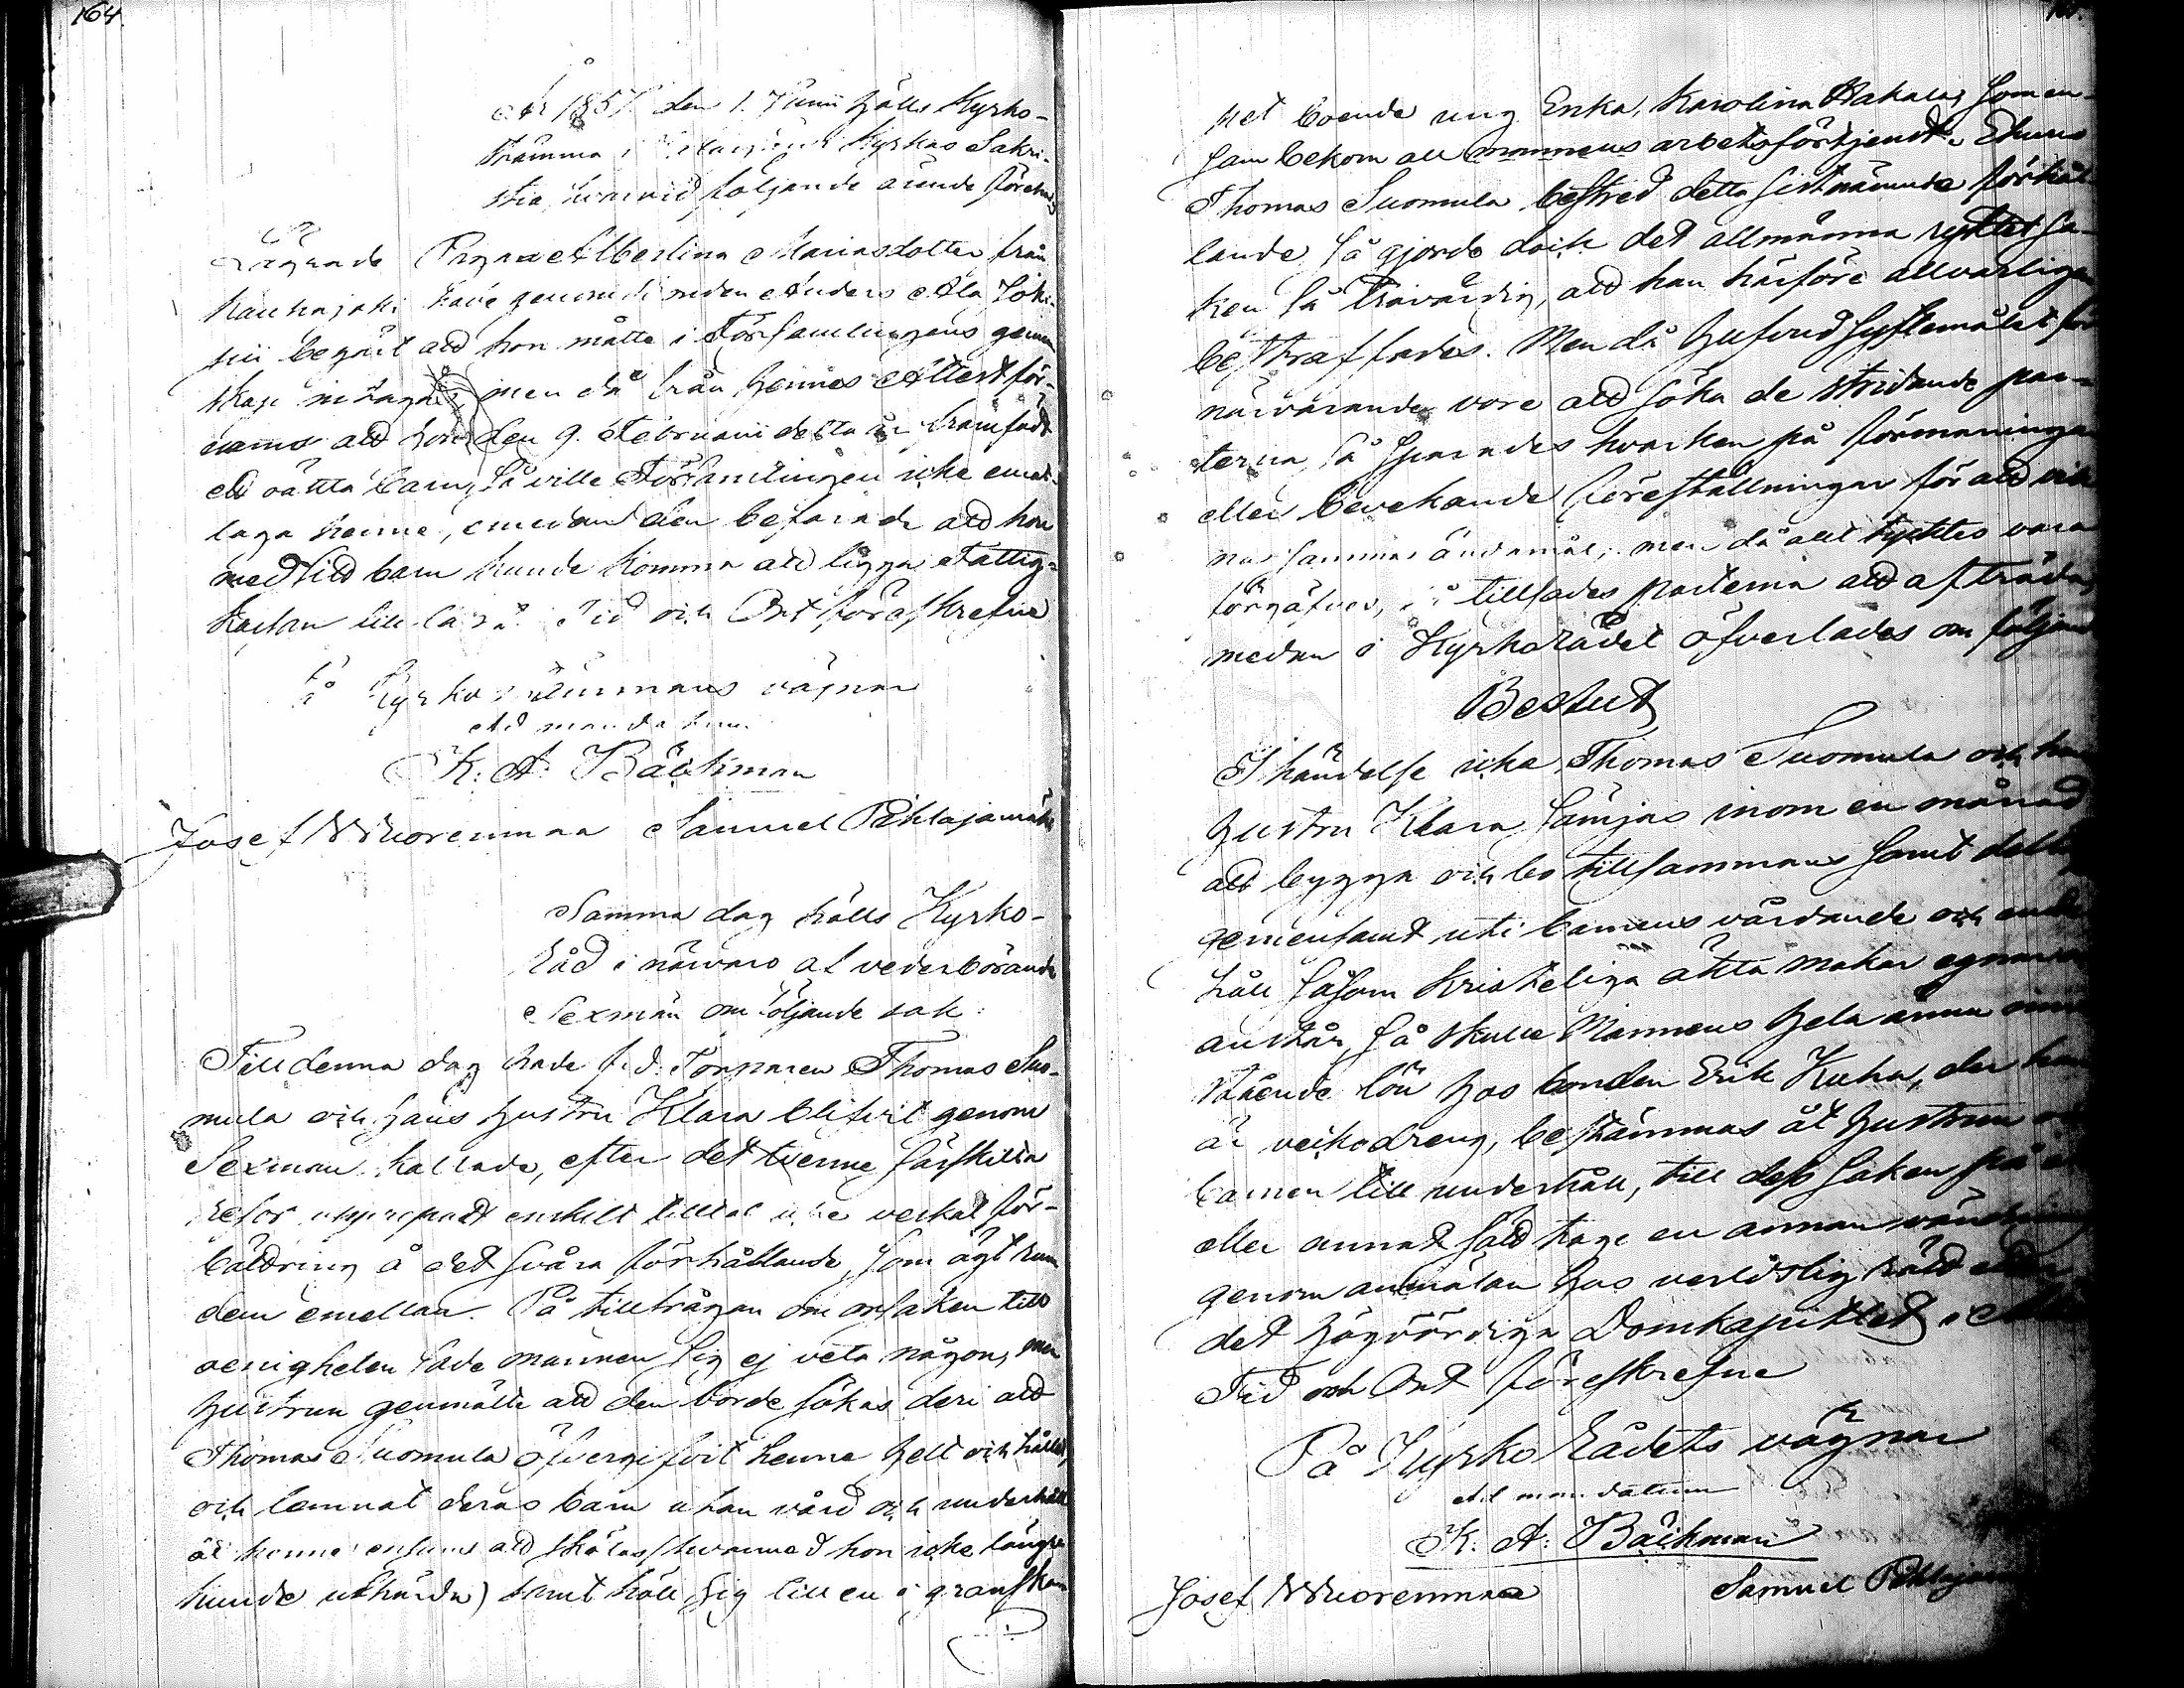 164.
År 1857 den 1. Junii hölls Kyrko-
stämma i Kyrkas Sakri-
stia, hvarvid följande ärende förehades
Pigan Albertina Mariasdotter från
Kauhajoki hade genom bonden Anders Ala Joki-
pii begärt att hon måtte i Församlingens gemen
skap intagas, men då från hennes Attest för-
nams att hon den 9. Februarii detta år framfödt
ett oäkta barn, så ville Församlingen icke emot-
taga henne, emedan den befarade att hon
med sitt barn kunde komma att ligga Fattig-
kassan till last. Tid och Ort föreskrefne
På Kyrkostämmans vägnar
Ad mandatum
K. A. Bäckman
Josef Wuorenmaa Samuel Pihlajamäki
Samma dag hölls Kyrko-
Råd i närvaro af vederbörande
Sexmän om följande sak:
Till denna dag hade f.d. Torparen Thomas Suo-
mula och hans hustru Klara blifvit genom
Sexman kallade, efter det tvenne särskilda
resor upprepadt enskilt tilltal icke verkat för-
bättring å det svåra förhållande, som ägt rum
dem emellan. På tillfrågan om orsaken till
oenigheten sade mannen sig ej veta någon, men
hustrun genmälte att den borde sökas deri att
Thomas Suomula öfvergifvit henne helt och hållet,
och lemnat deras barn utan vård och underhåll
åt henne ensam att skötas (hvarmed hon icke längre
kunde uthärda) samt höll sig till en i granska-
pet boende ung Enka, Karolina Hakala, som en-
sam bekom all mannens arbetsförtjenst. Ehuru
Thomas Suomula bestred detta sistnämnde förhål-
lande, så gjorde dock det allmänna ryktet sa-
ken så trovärdig, att han härföre allvarligen
bestraffades. Men då hufvudsyftemålet för
närvarande vore att söka de stridande par-
terna så sparades hvarken på förmaningar
eller bevekande föreställningar för att vin-
na samma ändamål; men då allt tycktes vara
förgäfves, så tillsades parterna att afträda,
medan i Kyrkorådet öfverlades om följande
Beslut
I händelse icke Thomas Suomula och hans
hustru Klara sämjas inom en månad
att bygga och bo tillsammans samt deltaga
gemensamt uti barnens vårdande och under-
håll såsom Kristeliga äkta makar egnar och
anstår, så skulle Mannens hela ännu inne-
stående lön hos bonden Erik Kuha, der han
är veckodreng, bestämmas åt hustrun och
barnen till underhåll, till dess saken på ett
eller annat sätt tager en annan vändning
genom anmälan hos verldslig rätt eller
det högvördiga Domkapitlet i Åbo
Tid och Ort föreskrefne
På KyrkoRådets vägnar
Ad mandatum
K. A. Bäckman
Josef Wuorenmaa Samuel Pihlajamäki